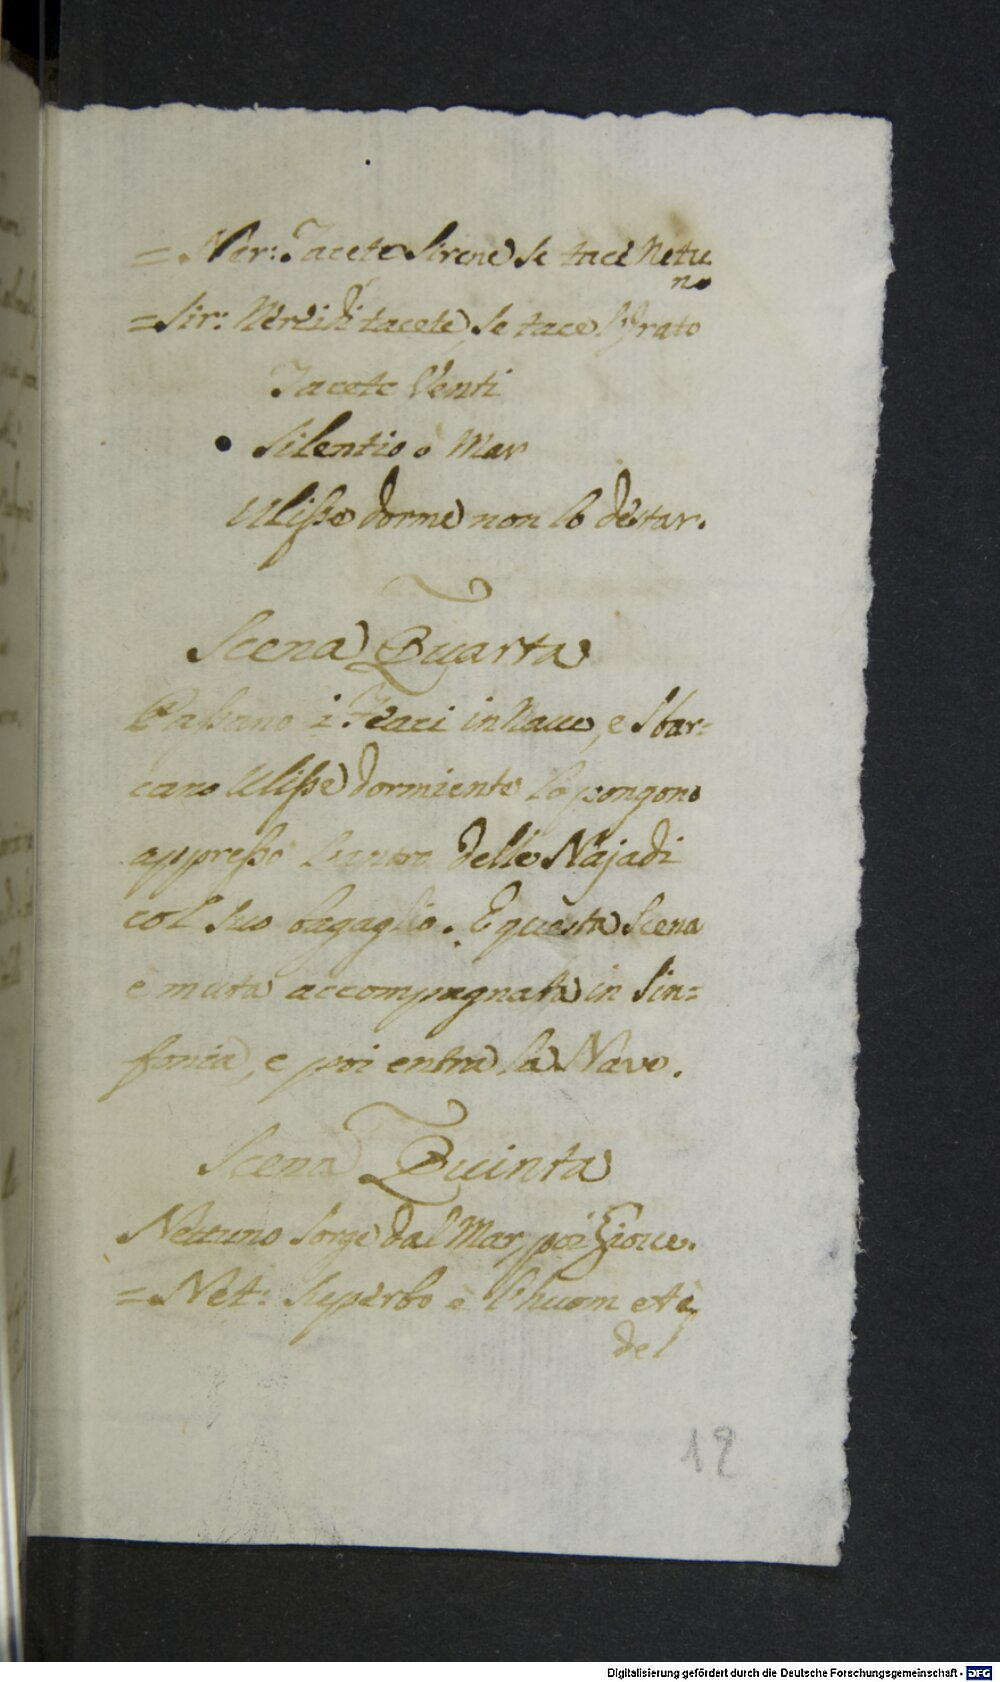 = Ner: Tacete Sirene se tace Netu
no
= Sir: Nereidi tacete, se tace l'Irato
Tacete Venti
Silentio ò Mar
Ulisse dorme non lo destar.
Scena Quarta
Passano i Feaci in Naue, e sbar=
cano Ulisse dormiente lo pongono
appresso l'antro delle Najadi
col suo bagaglio. E questa Scena
è muta accompagnata in Sin=
fonia, e poi entra la Nave.
Scena Quinta
Nettuno sorge dal Mar, poi Gioue.
= Net: Superbo è l'huom et è
del
12
Digitalisierung gefördert durch die Deutsche Forschungsgemeinschaft - DFG